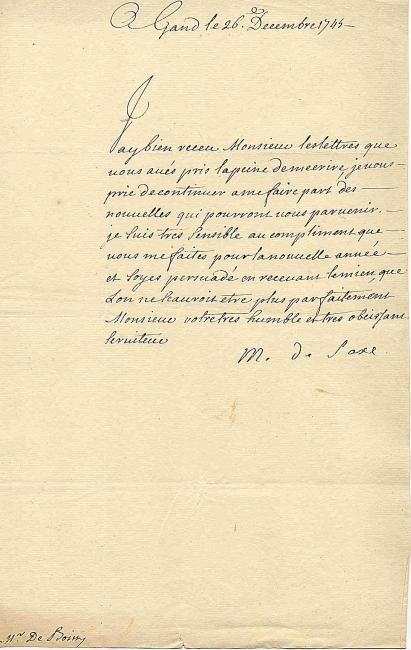 A Gand le 26.e Decembre 1745
J'ay bien receu Monsieur les lettres que
vous avés pris la peine de m'ecrire je vous
prie de continuer a me faire part des
nouvelles qui pourront vous parvenir.
je suis tres sensible au compliment que
vous me faites pour la nouvelle année
et soyes persuadé en recevant le mien, que
l'on ne scauroit etre plus parfaitement
Monsieur votre tres humble et tres obeissant
serviteur
M. de Saxe
Mr. De Boissy